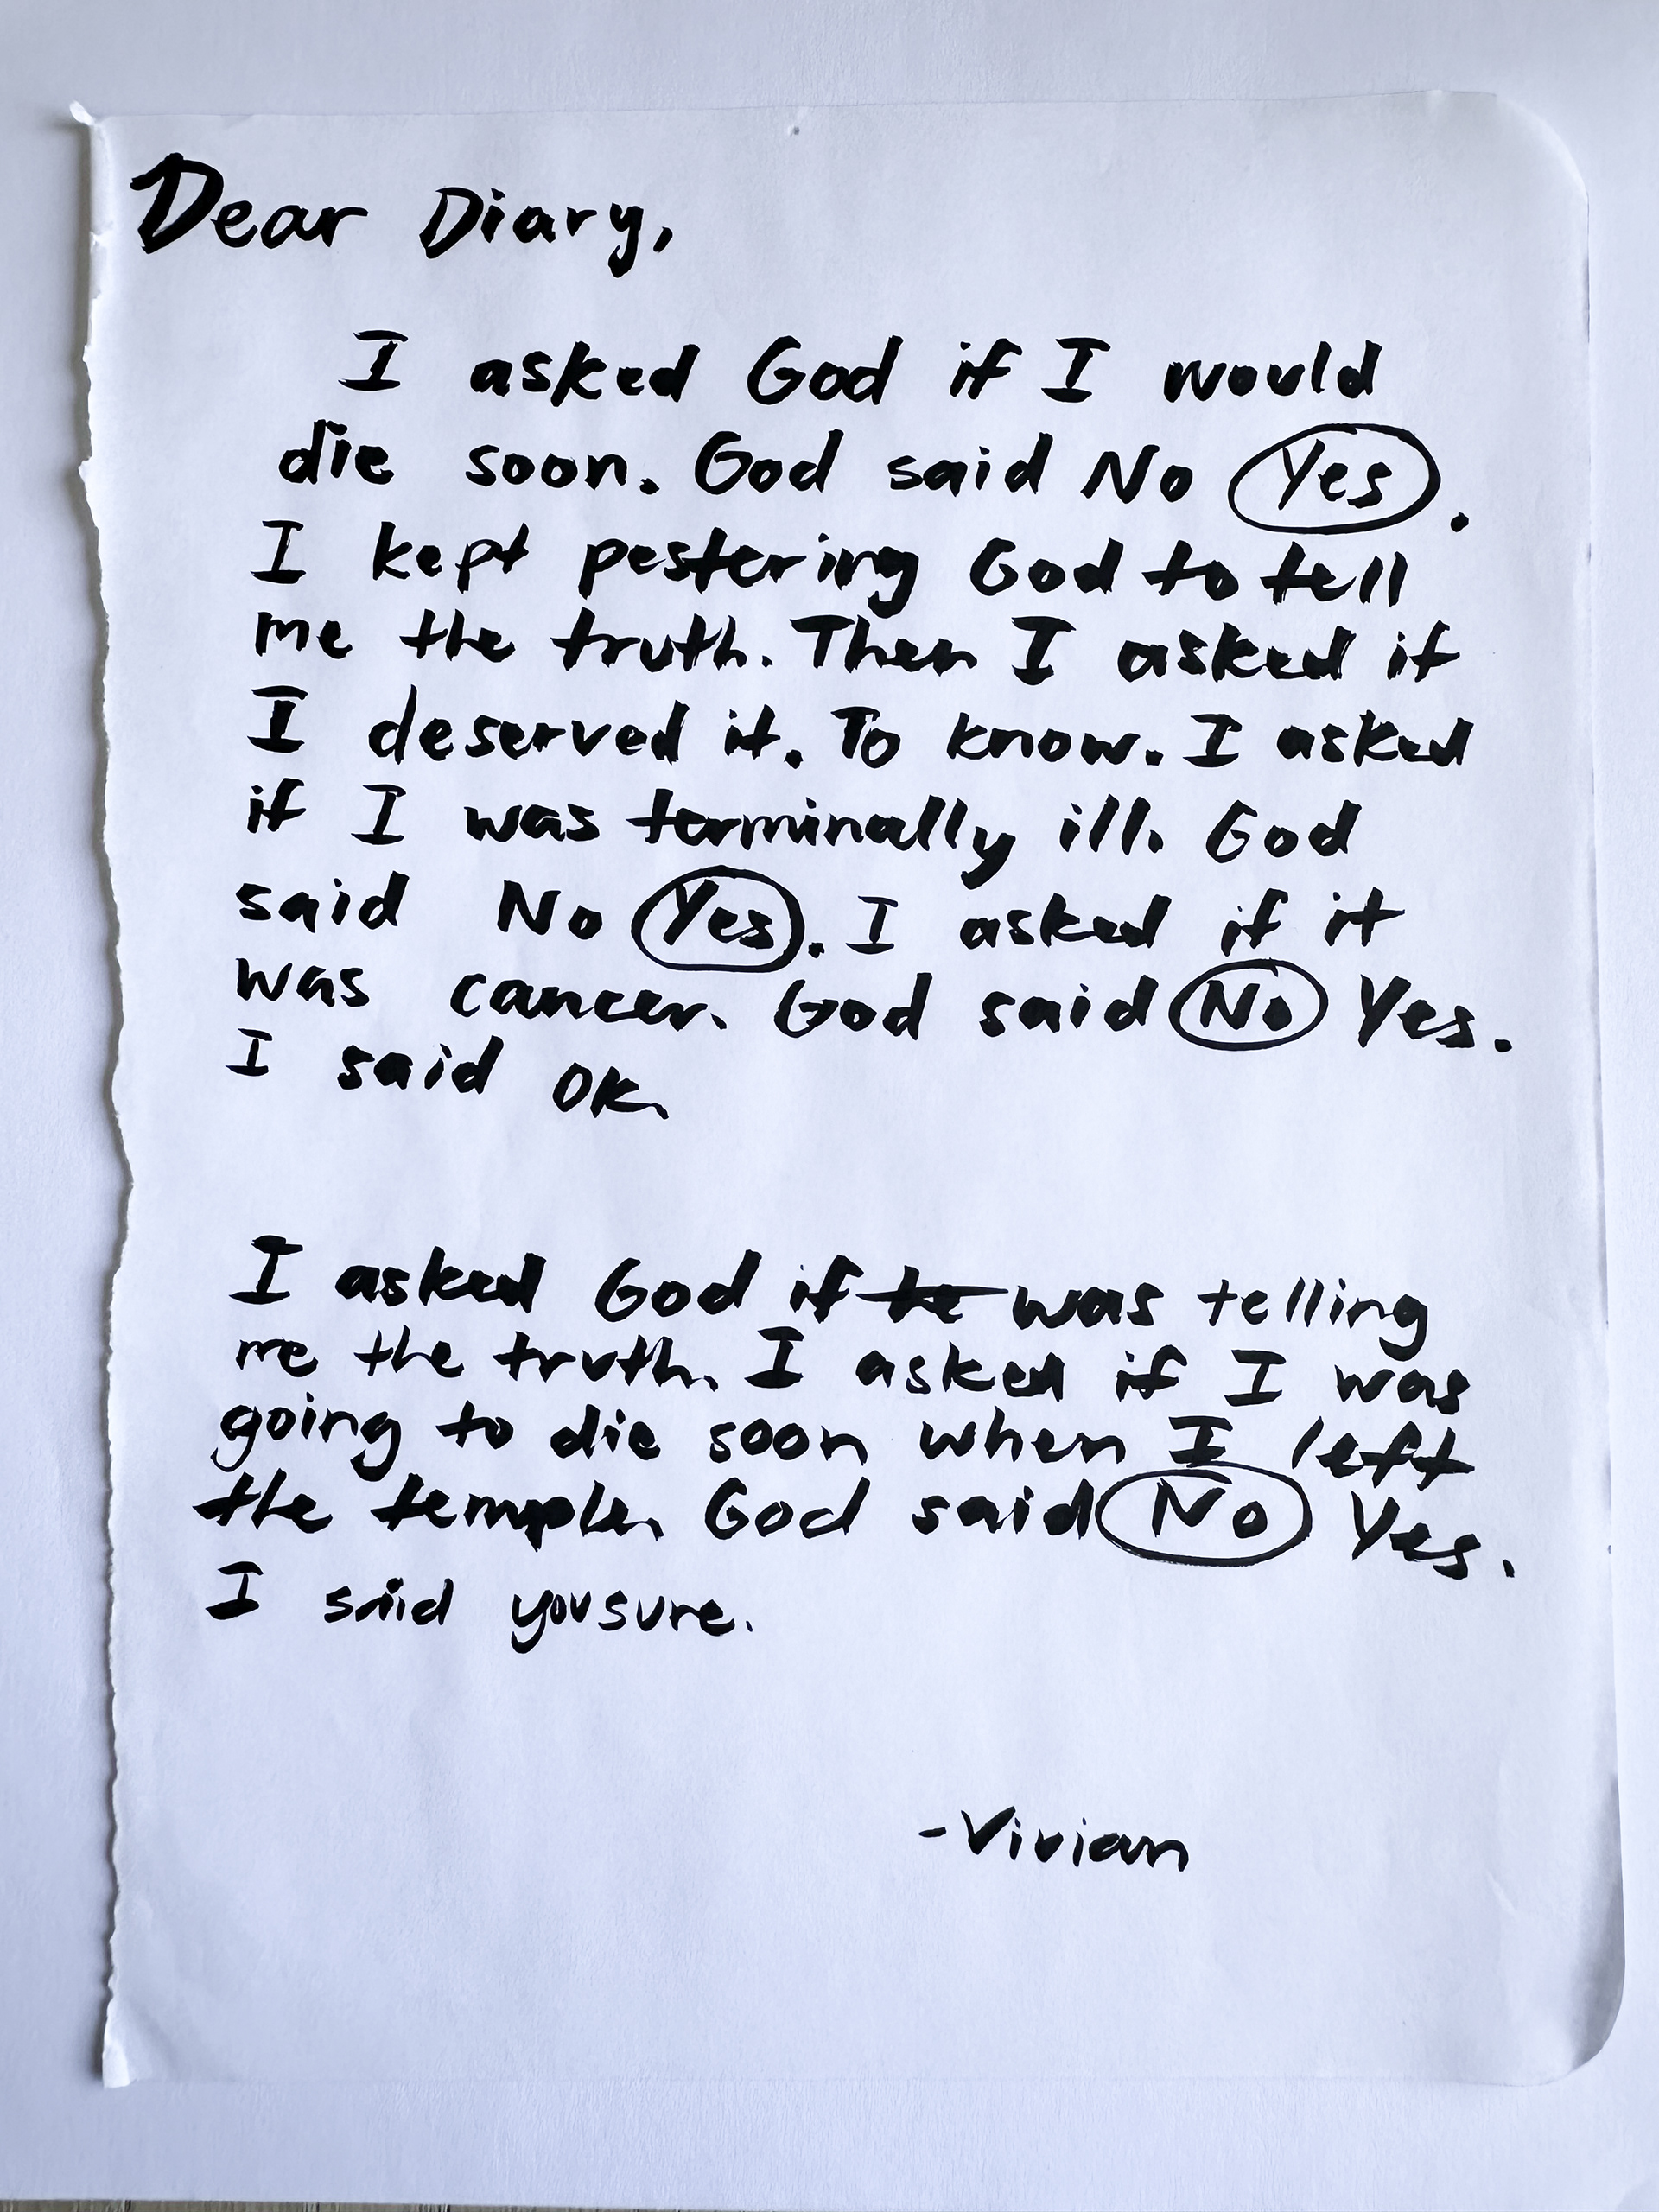 Dear Diary,
I asked God if I would
die soon. God said No Yes.
I kept pestering God to tell
me the truth. Then I asked if
I deserved it. To know. I asked
if I was terminally ill. God
said No Yes. I asked if it
was cancer. God said No Yes.
I said OK.
I asked God if he was telling
me the truth. I asked if I was
going to die soon when I left
the temple. God said No Yes.
I said you sure.
-Vivian